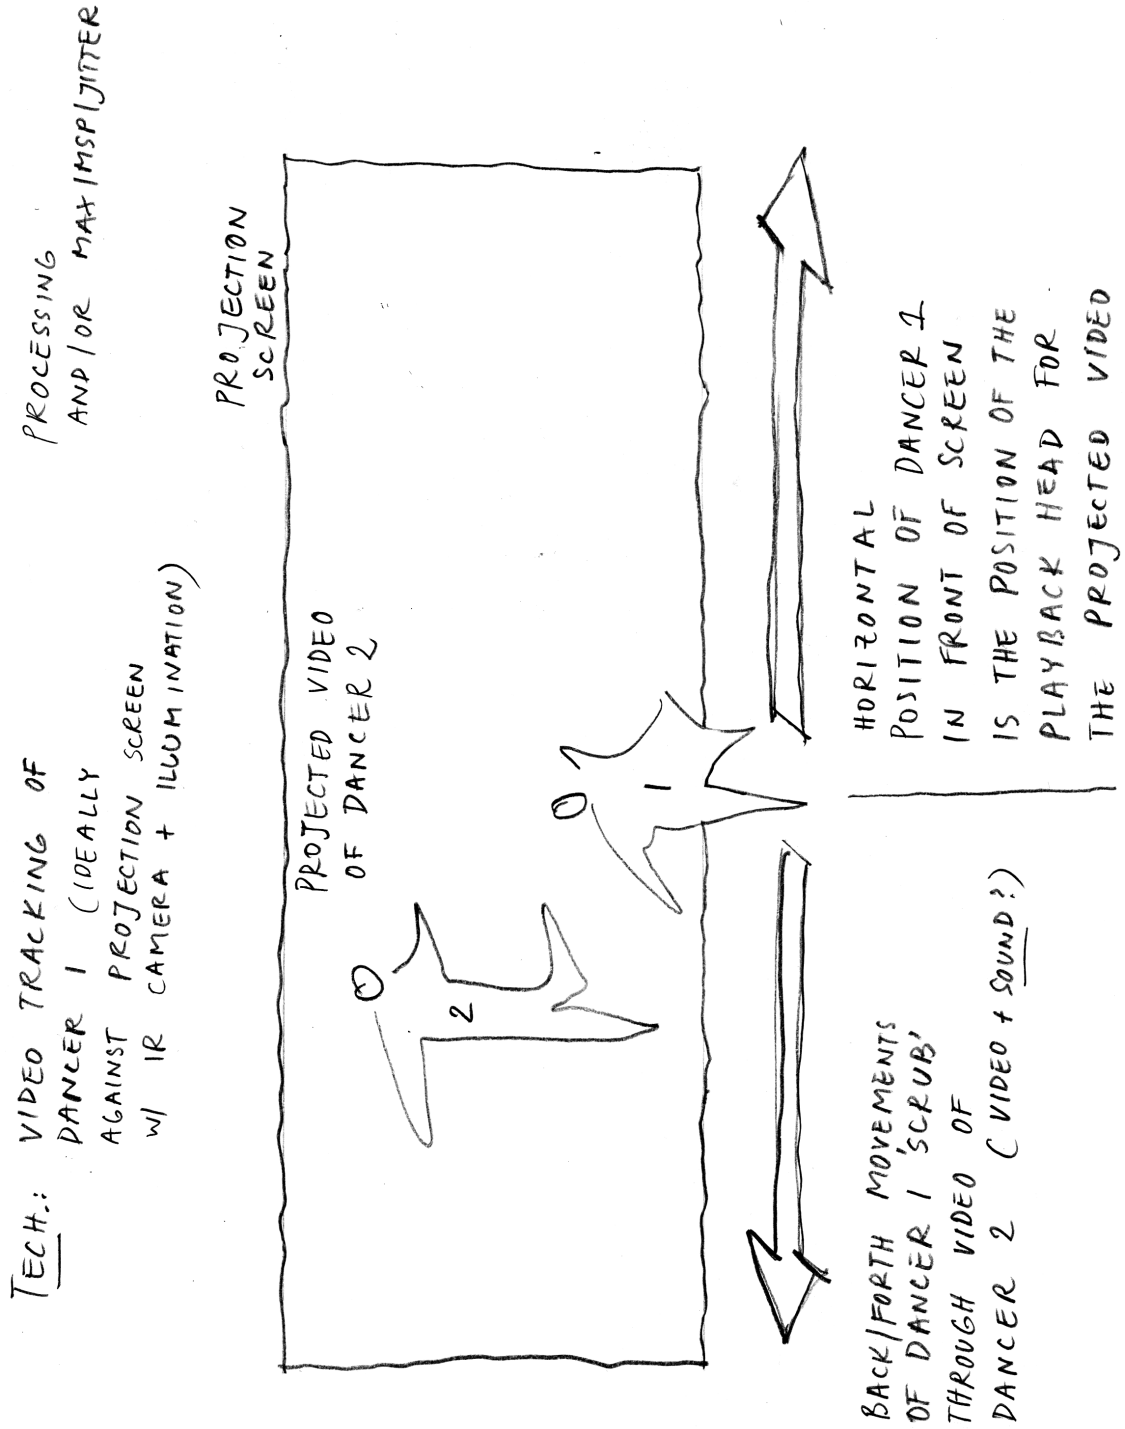 TECH.: VIDEO TRACKING OF
DANCER 1 (IDEALLY
AGAINST PROJECTION SCREEN
W/ IR CAMERA + ILLUMINATION)
PROCESSING
AND/OR MAX/MSP/JITTER
PROJECTION
SCREEN
PROJECTED VIDEO
OF DANCER 2
2
1
BACK/FORTH MOVEMENTS
OF DANCER 1 'SCRUB'
THROUGH VIDEO OF
DANCER 2 (VIDEO + SOUND?)
HORIZONTAL
POSITION OF DANCER 1
IN FRONT OF SCREEN
IS THE POSITION OF THE
PLAYBACK HEAD FOR
THE PROJECTED VIDEO